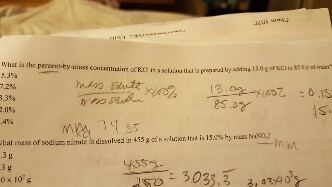 What is the percent-by-mass concentration of KCl in a solution that is prepared by adding 13.0 g of KCl to 85.0 g of water?
5.3%
7.2%
3.3%
2.0%
.4%
mass solute / mass solution × 100%
13.0g / 85.0g × 100% = 0.15
74.55
What mass of sodium nitrate is dissolved in 455 g of a solution that is 15.0% by mass NaNO₃?
.3 g
.3 g
455g / 150 = 3.033.3
3.03×10³g